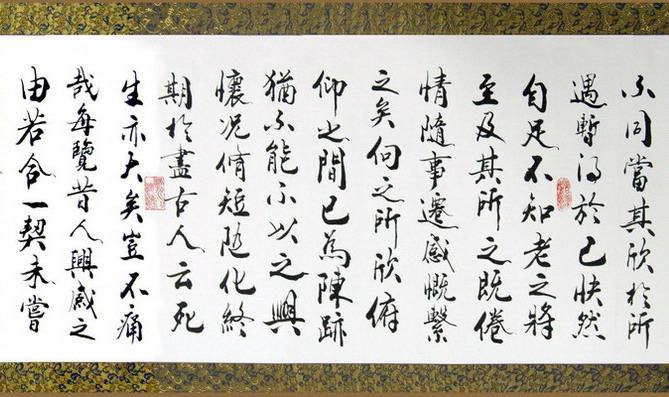 不同當其欣於所
遇暫得於己快然
自足不知老之將
至及其所之既倦
情隨事遷感慨繫
之矣向之所欣俯
仰之間已為陳跡
猶不能不以之興
懷況脩短隨化終
期於盡古人云死
生亦大矣豈不痛
哉每覽昔人興感之
由若合一契未嘗